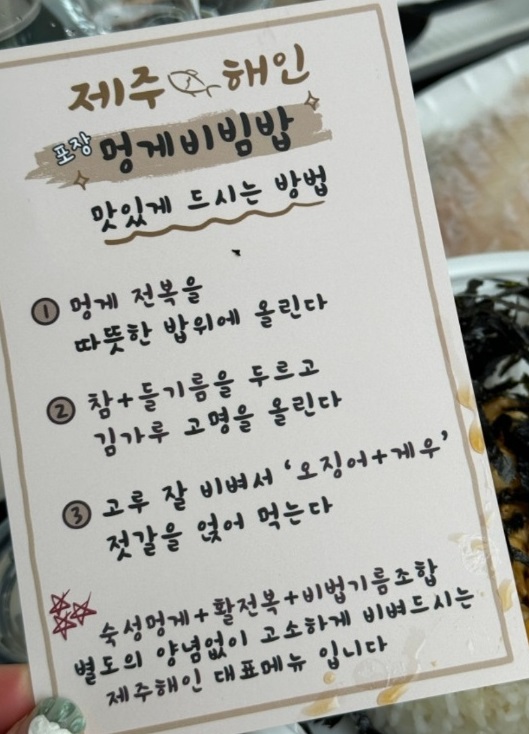 제주 해인
포장 멍게비빔밥
맛있게 드시는 방법
① 멍게 전복을
따뜻한 밥위에 올린다
② 참+들기름을 두르고
김가루 고명을 올린다
③ 고루 잘 비벼서 '오징어+게우'
젓갈을 얹어 먹는다
숙성멍게+활전복+비법기름조합
별도의 양념없이 고소하게 비벼드시는
제주해인 대표메뉴 입니다